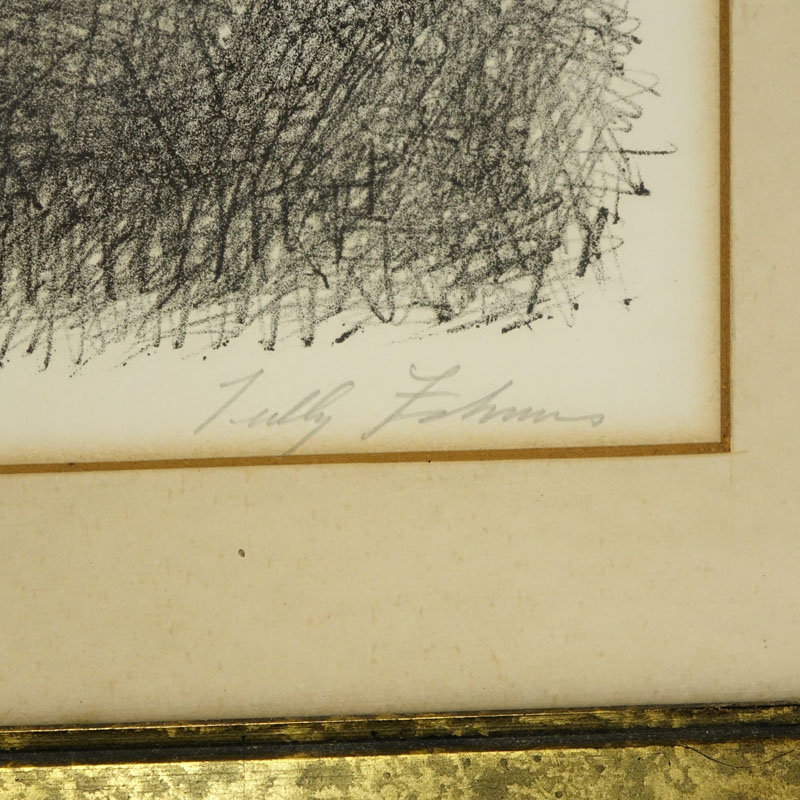 Tully Filmus